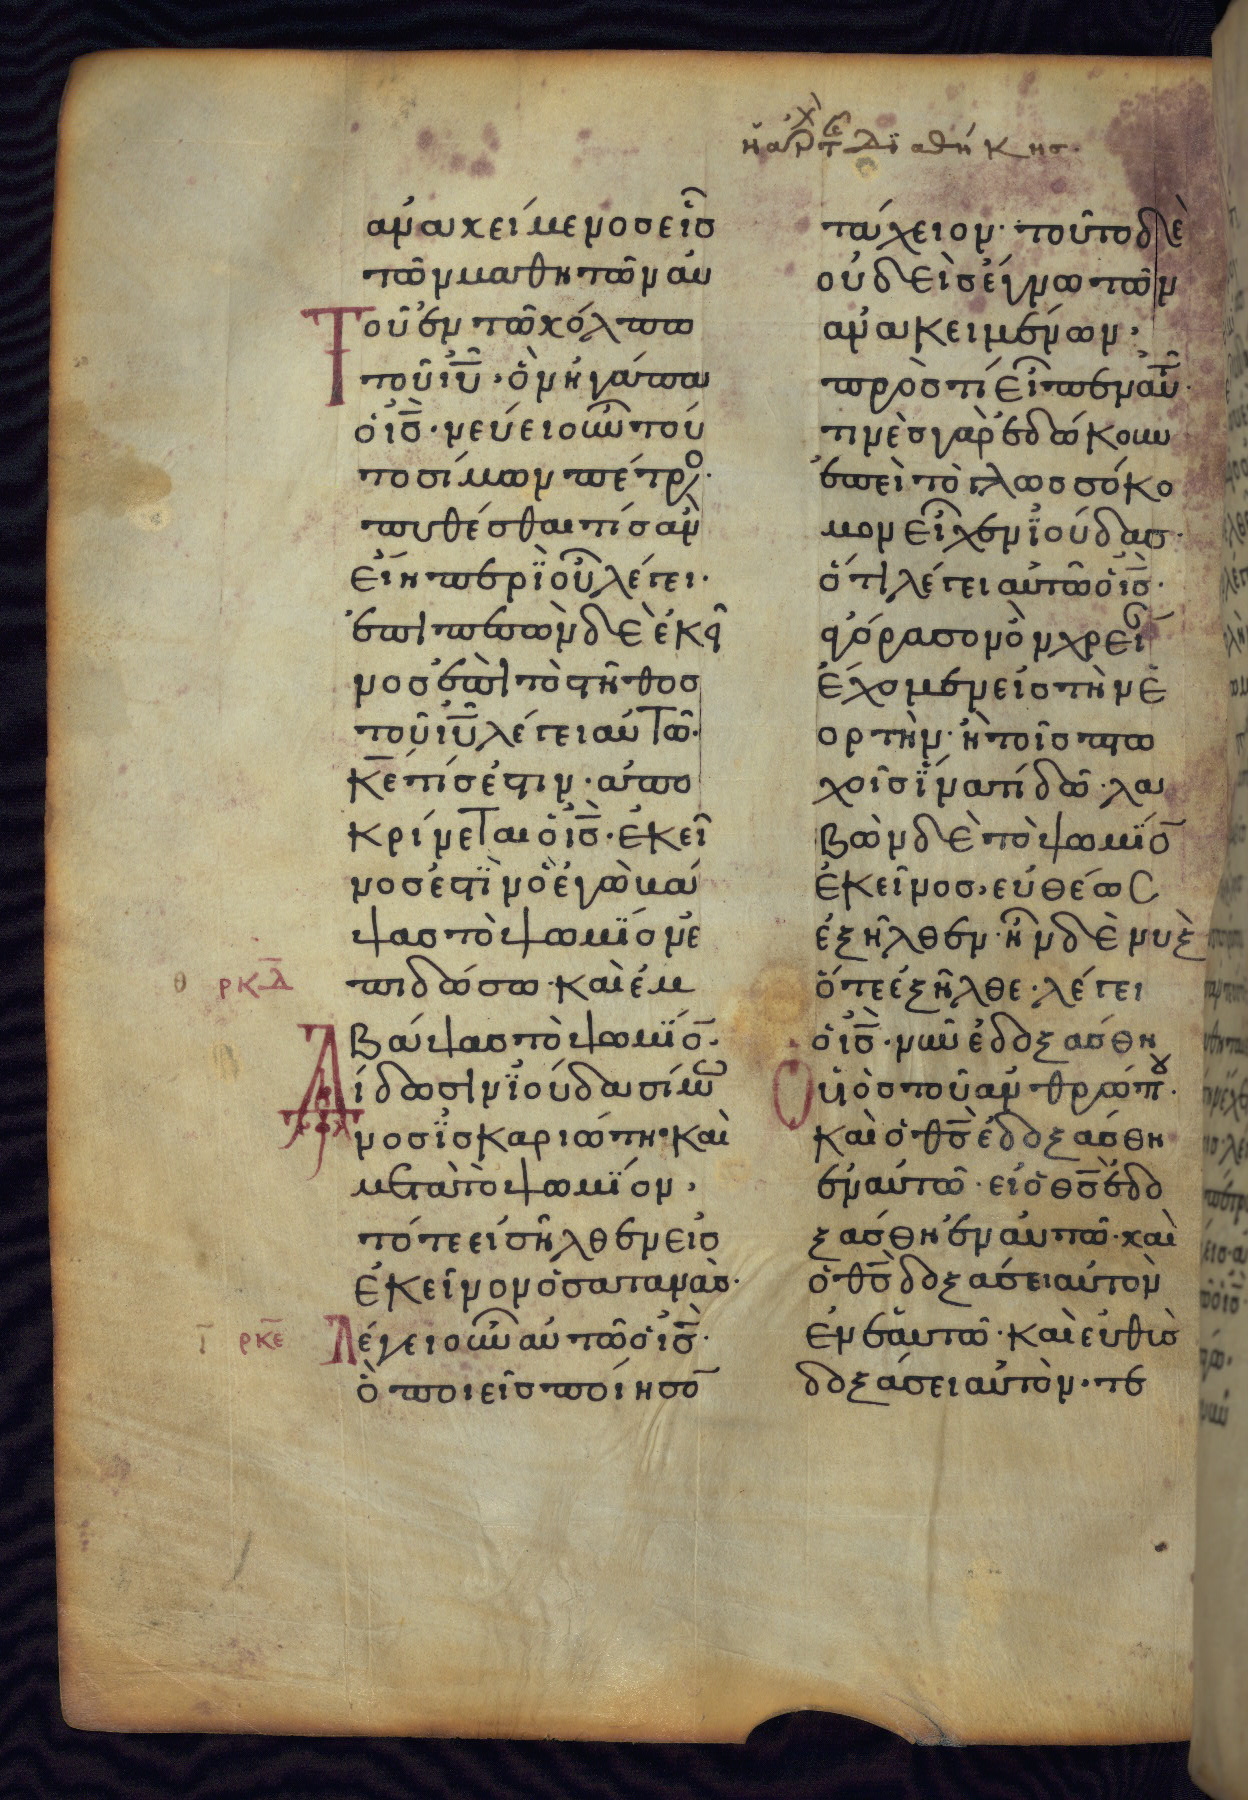 ἡ ἀρχ τ διαθήκης·
ἀνακείμενος εἷς
τῶν μαθητῶν αὐ
τοῦ ἐν τῶ κόλπω
τοῦ ιῦ· ὃν ἠγάπα
ὁ ισ· νεύει οὖν τού
τω σίμων πέτρο·
πυθέσθαι τίς ἂν
εἴη περὶ οὗ λέγει·
ἐπιπεσὼν δὲ ἐκεῖ
νος ἐπὶ τὸ στῆθος
τοῦ ιῦ λέγει αὐτῶ·
κε τίς ἐστιν· ἀπο
κρίνεται ὁ ισ· ἐκεῖ
νος ἐστὶν ὃ ἐγὼ βά
ψας τὸ ψωμίον ἐ
πιδώσω· καὶ ἐμ
θ ρκδ
βάψας τὸ ψωμίον·
δίδωσιν ἰούδα σίμω
νος ἰσκαριώτη· καὶ
μετὰ τὸ ψωμίον·
τότε εἰσῆλθεν εἰς
ἐκεῖνον ὁ σατανᾶς·
ι ρκε λέγει οὖν αὐτῶ ὁ ισ·
ὃ ποιεῖς ποίησον
τάχειον· τοῦτο δὲ
οὐδεὶς ἔγνω τῶν
ἀνακειμένων·
πρὸς τί εἶπεν αὐτ·
τινὲς γὰρ ἐδόκουν
ἐπεὶ τὸ γλωσσόκο
μον εἶχεν ἰούδας·
ὅτι λέγει αὐτῶ ὁ ισ·
ἀγόρασον ὧν χρεί
ἔχομεν εἰς τὴν ἑ
ορτήν· ἢ τοῖς πτω
χοῖς ἵνα τί δῶ· λα
βὼν δὲ τὸ ψωμίον
ἐκεῖνος· εὐθέως
ἐξῆλθεν· ἦν δὲ νὺξ
ὅτε ἐξῆλθε· λέγει
ὁ ισ· νῦν ἐδοξάσθη
ὁ υἱὸς τοῦ ἀνθρώπου·
καὶ ὁ θσ ἐδοξάσθη
ἐν αὐτῶ· εἰ ὁ θσ ἐδο
ξάσθη ἐν αὐτῶ· καὶ
ὁ θσ δοξάσει αὐτὸν
ἐν ἑαυτῶ· καὶ εὐθὺς
δοξάσει αὐτόν· τε